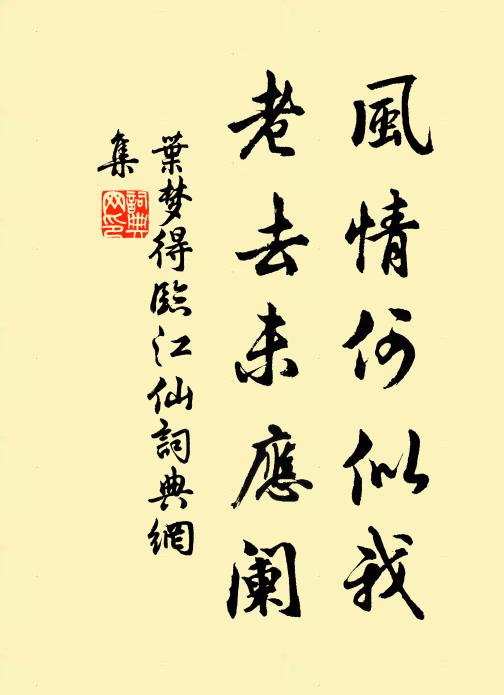 風情何似我
老去未應阑
葉梦得臨江仙詞典網
集
詞典网印